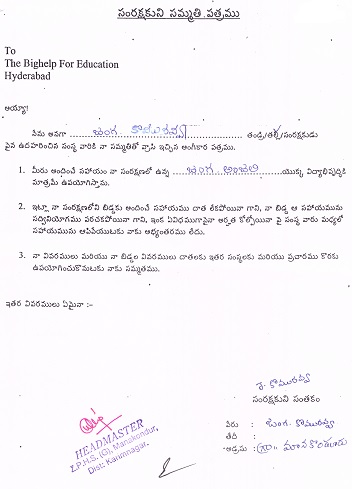 సంరక్షకుని సమ్మతి పత్రము
To
The Bighelp For Education
Hyderabad
అయ్యా!
నేను అనగా బెంగ. కొమురవ్వ తండ్రి/తల్లి/సంరక్షకుడు
పైన ఉదహరించిన సంస్థ వారికి నా సమ్మతితో వ్రాసి ఇచ్చిన అంగీకార పత్రము.
1. మీరు అందించే సహాయం నా సంరక్షణలో ఉన్న బెంగ. అంజలి యొక్క విద్యాభివృద్ధికి
మాత్రమే ఉపయోగిస్తాను.
2. ఇట్లా నా సంరక్షణలోని బిడ్డకు అందించే సహాయము దాత లేకపోయినా గాని, నా బిడ్డ ఆ సహాయమును
సద్వినియోగము పరచకపోయినా గాని, ఇంక ఏవిధముగానైనా అర్హత కోల్పోయినా పై సంస్థ వారు మధ్యలో
సహాయమును ఆపివేయుటకు నాకు అభ్యంతరము లేదు.
3. నా వివరములు మరియు నా బిడ్డల వివరములు దాతలకు ఇతర సంస్థలకు మరియు ప్రచారము కొరకు
ఉపయోగించుకొనుటకు నాకు సమ్మతము.
ఇతర వివరములు ఏమైనా :-
కొమురవ్వ
సంరక్షకుని సంతకం
పేరు : బెంగ. కొమురవ్వ
తేది :
అడ్రసు : గ్రా. మానకొండూరు
HEADMASTER
Z.P.H.S. (G), Manakondur,
Dist: Karimnagar.